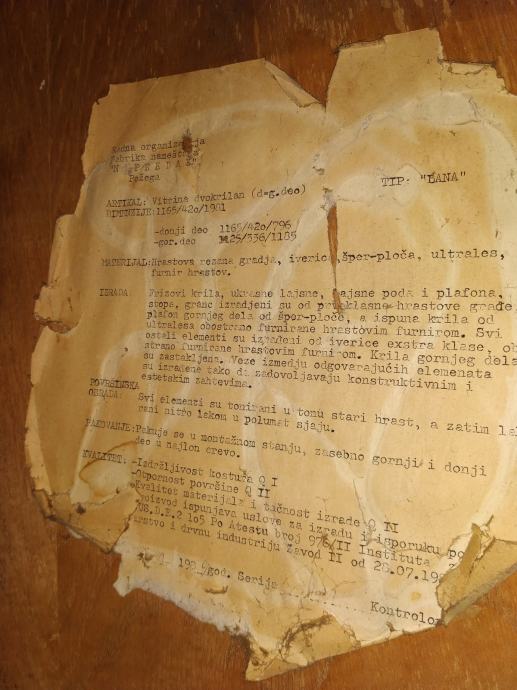 Radna organizacija
Fabrika nameštaja
"N A P R E D A K"
Požega
TIP: "DANA"
ARTIKAL: Vitrina dvokrilan (d=g.deo)
DIMENZIJE: 1165/420/1981
-donji deo 1165/420/796
-gor.deo 1125/336/1185
MATERIJAL:Hrastova rezana gradja, iverica,šper-ploča, ultrales,
furnir hrastov.
IZRADA: Frizovi krila, ukrasne lajsne, lajsne poda i plafona,
stope, granc izradjeni su od prvoklasne hrastove gradje
plafon gornjeg dela od špor-ploče, a ispuna krila od
ultralesa obostrano furnirane hrastovim furnirom. Svi
ostali elementi su izradjeni od iverice exstra klase, ob
strano furnirane hrastovim furnirom. Krila gornjeg dela
su zastakljena. Veze izmedju odgovarajućih elemenata
su izradjene tako da zadovoljavaju konstruktivnim i
estetskim zahtevima.
POVRŠINSKA
OBRADA: Svi elemenzi su tonirani u tonu stari hrast, a zatim la
rani nitro lakom u polumat sjaju.
PAKOVANJE:Pakuje se u montažnom stanju, zasebno gornji i donji
deo u najlon crevo.
KVALITET: -Izdržljivost kostura Q I
-Otpornost površine Q II
-Kvalitet materijala i tačnost izrade Q IV
oizvod ispunjava uslove za izradu i isporuku po
US.D.E.2 105 Po Atestu broj 976/II Instituta
arstvo i drvnu industriju Zavod II od 28.07.19
god. Serija
Kontrolor